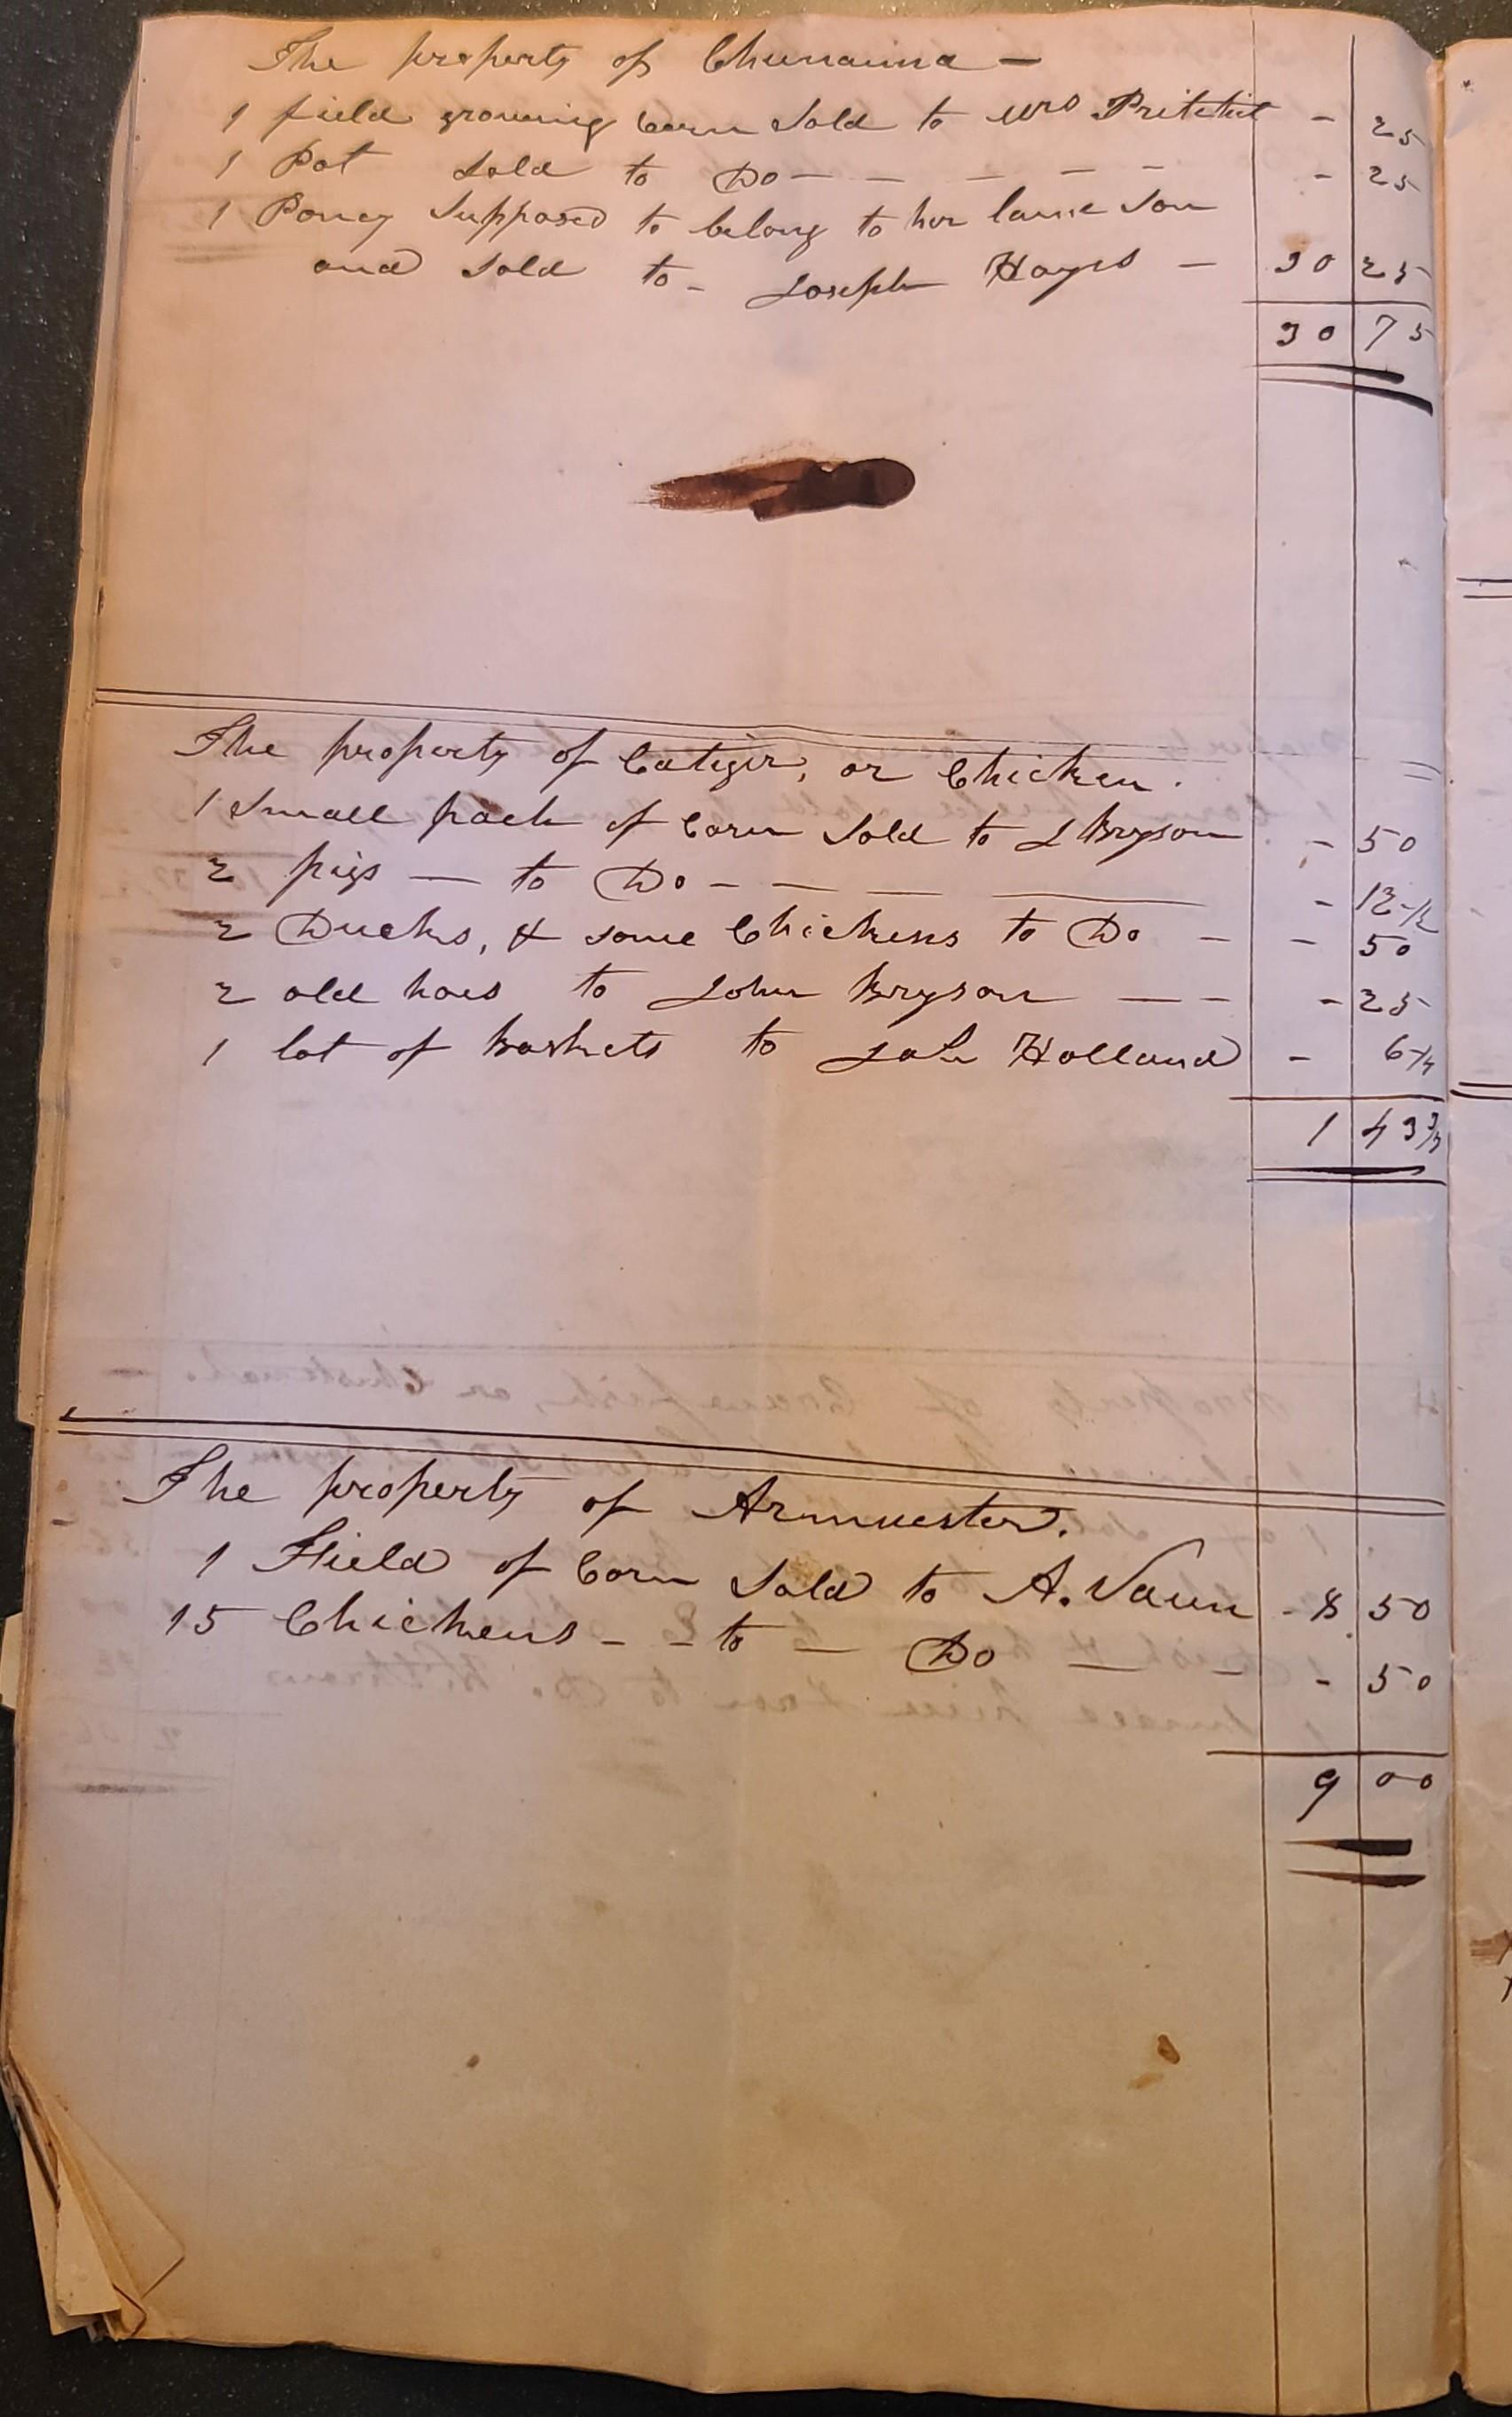 The property of Chunauna —
1 field growing Corn Sold to Mrs Pritchit - 25
1 Pot Sold to Do — — — — — - 25
1 Poney Supposed to belong to her lame Son
and Sold to - Joseph Hayes — 30 25
30 75
The property of Categer, or Chicken.
1 Small pach of Corn Sold to J Bryson - 50
2 pigs — to Do - — — — - 12 1/2
2 Ducks, & some Chickens to Do — - 50
2 old hoes to John Bryson — — - 25
1 lot of baskets to Holland - 6 1/4
1 43 3/4
The property of Armuester.
1 Field of Corn Sold to A. Vaun - 8 50
15 Chickens - - to — Do — — - 50
9 00